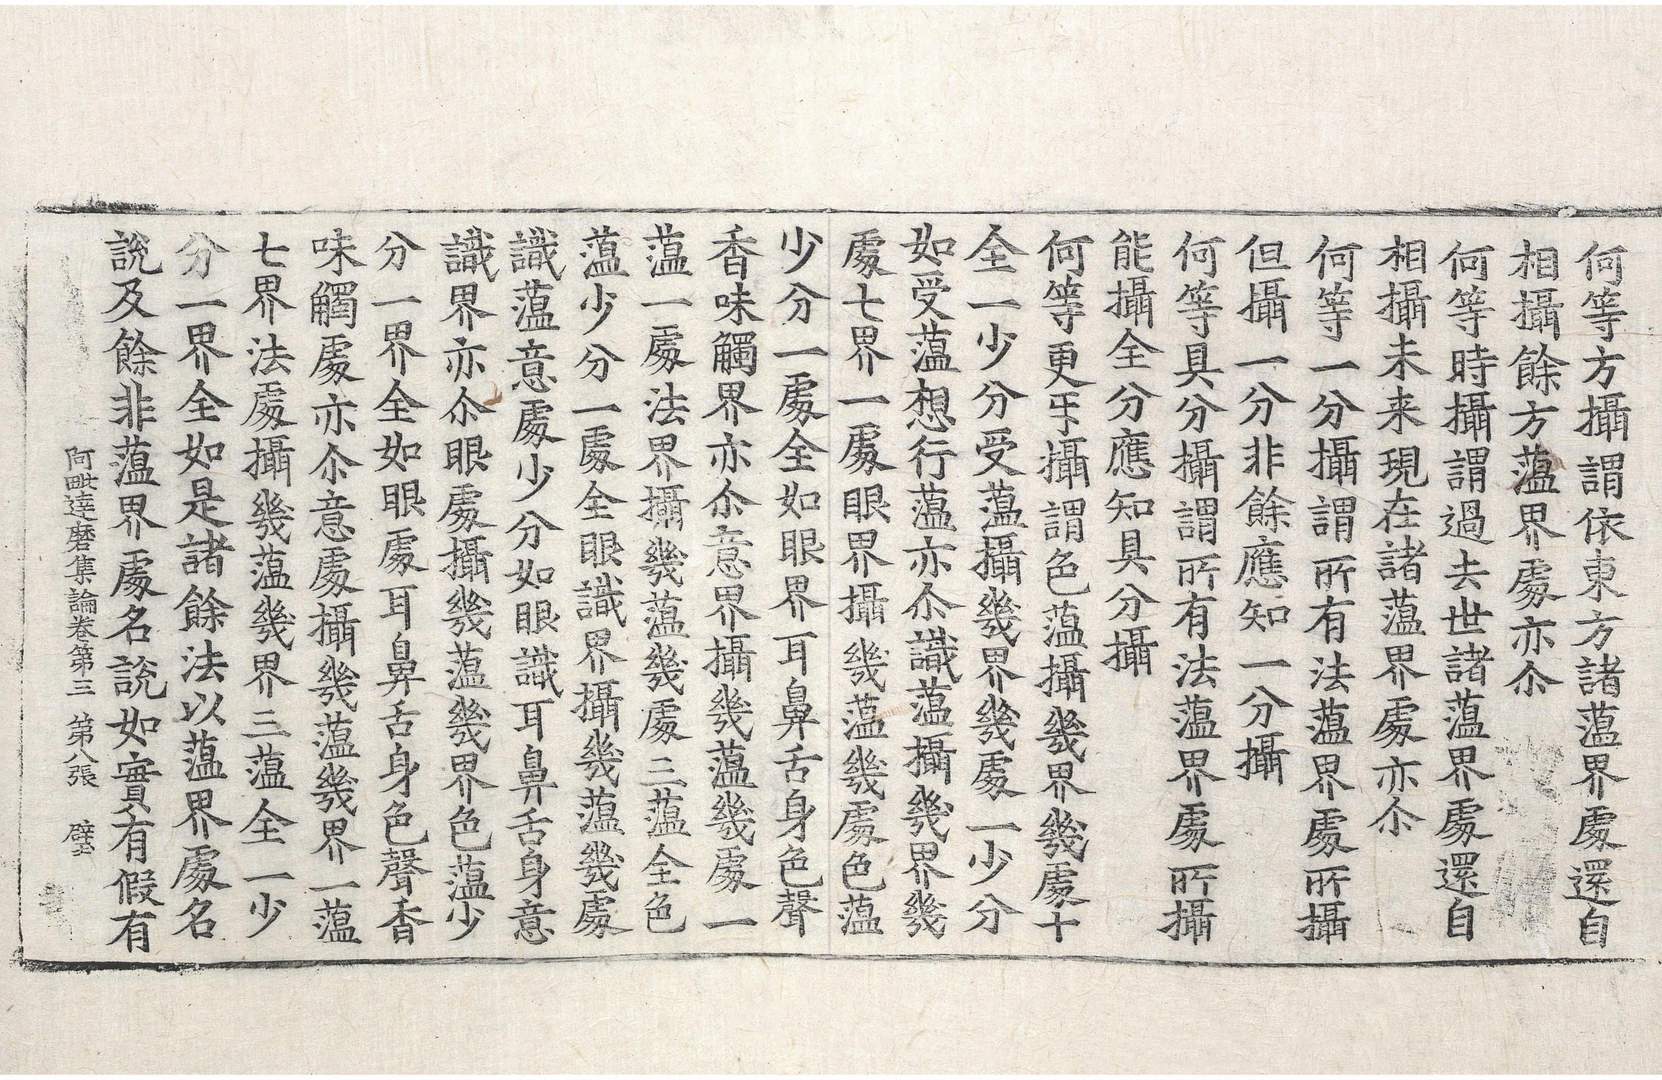 何等方攝謂依東方諸蘊界處還自
相攝餘方蘊界處亦尒
何等時攝謂過去世諸蘊界處還自
相攝未来現在諸蘊界處亦尒
何等一分攝謂所有法蘊界處所攝
但攝一分非餘應知一分攝
何等具分攝謂所有法蘊界處所攝
能攝全分應知具分攝
何等更𭃡攝謂色蘊攝幾界幾處十
全一少分受蘊攝幾界幾處一少分
如受蘊想行蘊亦尒識蘊攝幾界幾
處七界一處眼界攝幾蘊幾處色蘊
少分一處全如眼界耳鼻舌身色聲
香味觸界亦尒意界攝幾蘊幾處一
蘊一處法界攝幾蘊幾處三蘊全色
蘊少分一處全眼識界攝幾蘊幾處
識蘊意處少分如眼識耳鼻舌身意
識界亦尒眼處攝幾蘊幾界色蘊少
分一界全如眼處耳鼻舌身色聲香
味觸處亦尒意處攝幾蘊幾界一蘊
七界法處攝幾蘊幾界三蘊全一少
分一界全如是諸餘法以蘊界處名
說及餘非蘊界處名說如實有假有
阿毗達磨集論卷第三 第八張 璧